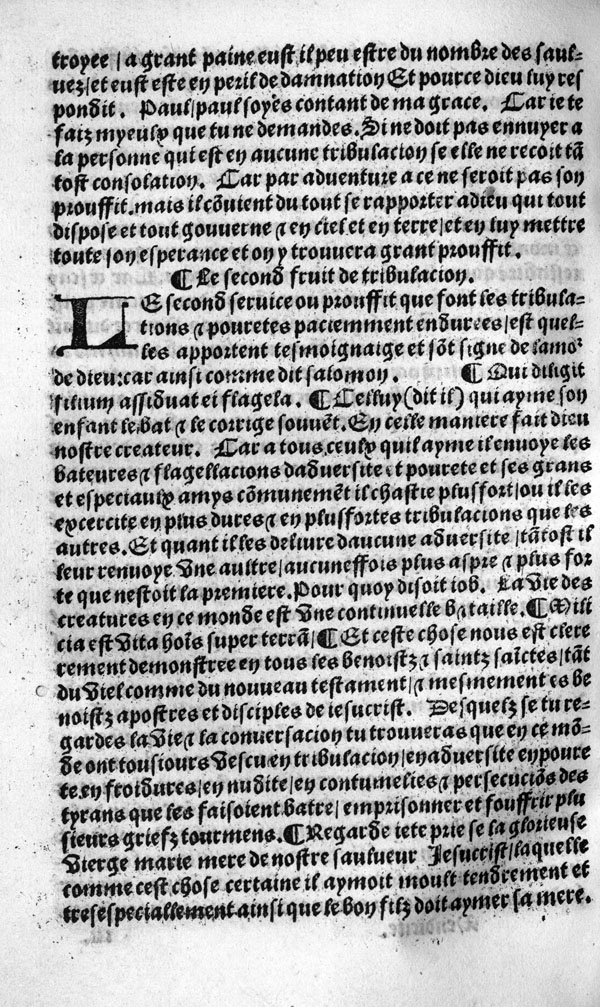 troyee / a grant paine eust il peu estre du nombre des saul-
uez / et eust este en peril de damnation Et pource dieu luy res
pondit. Paul / paul soyes contant de ma grace. Car ie te
faiz myeulx que tu ne demandes. Si ne doit pas ennuyer a
la personne qui est en aucune tribulacion se elle ne recoit tā
tost consolation. Car par aduenture a ce ne seroit pas son
prouffit. mais il cōuient du tout se rapporter a dieu qui tout
dispose et tout gouuerne ⁊ en ciel et en terre / et en luy mettre
toute son esperance et on y trouuera grant prouffit.
¶ Le second fruit de tribulacion.
LE second seruice ou prouffit que font les tribula-
tions ⁊ pouretes paciemment endurees / est quel-
les apportent tesmoignaige et sōt signe de lamor
de dieu: car ainsi comme dit salomon. ¶ Qui diligit
filium assiduat ei flagela. ¶ Celluy (dit il) qui ayme son
enfant le bat ⁊ le corrige souuēt. En celle maniere fait dieu
nostre createur. Car a tous ceulx quil ayme il enuoye les
bateures ⁊ flagellacions daduersite et pourete et ses grans
et especiaulx amys cōmunemēt il chastie plus fort / ou il les
excercite en plus dures ⁊ en plus fortes tribulacions que les
autres. Et quant il les deliure daucune aduersite / tātost il
leur renuoye vne aultre / aucuneffois plus aspre ⁊ plus for
te que nestoit la premiere. Pour quoy disoit iob. La vie des
creatures en ce monde est vne continuelle bataille. ¶ Mili
cia est vita hoīs super terrā / ¶ Et ceste chose nous est clere
rement demonstree en tous les benoistz ⁊ saintz saīctes / tāt
du viel comme du nouueau testament / ⁊ mesmement es be
noistz apostres et disciples de iesucrist. Desquelz se tu re-
gardes la vie ⁊ la conuersacion tu trouueras que en ce mō-
de ont tousiours vescu en tribulacion / en aduersite en poure
te. en froidures / en nudite / en contumelies ⁊ persecuciōs des
tyrans que les faisoient batre / emprisonner et souffrir plu
sieurs griefz tourmens. ¶ Regarde ie te prie se la glorieuse
vierge marie mere de nostre saulueur Jesucrist / laquelle
comme cest chose certaine il aymoit moult tendrement et
tresespeciallement ainsi que le bon filz doit aymer sa mere.